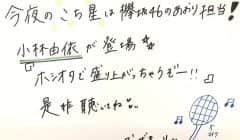 今夜のこち星は欅坂46のあおり担当!
小林由依が登場☆
ホシオタで盛り上がっちゃうぞー!!
是非聴いてね♪